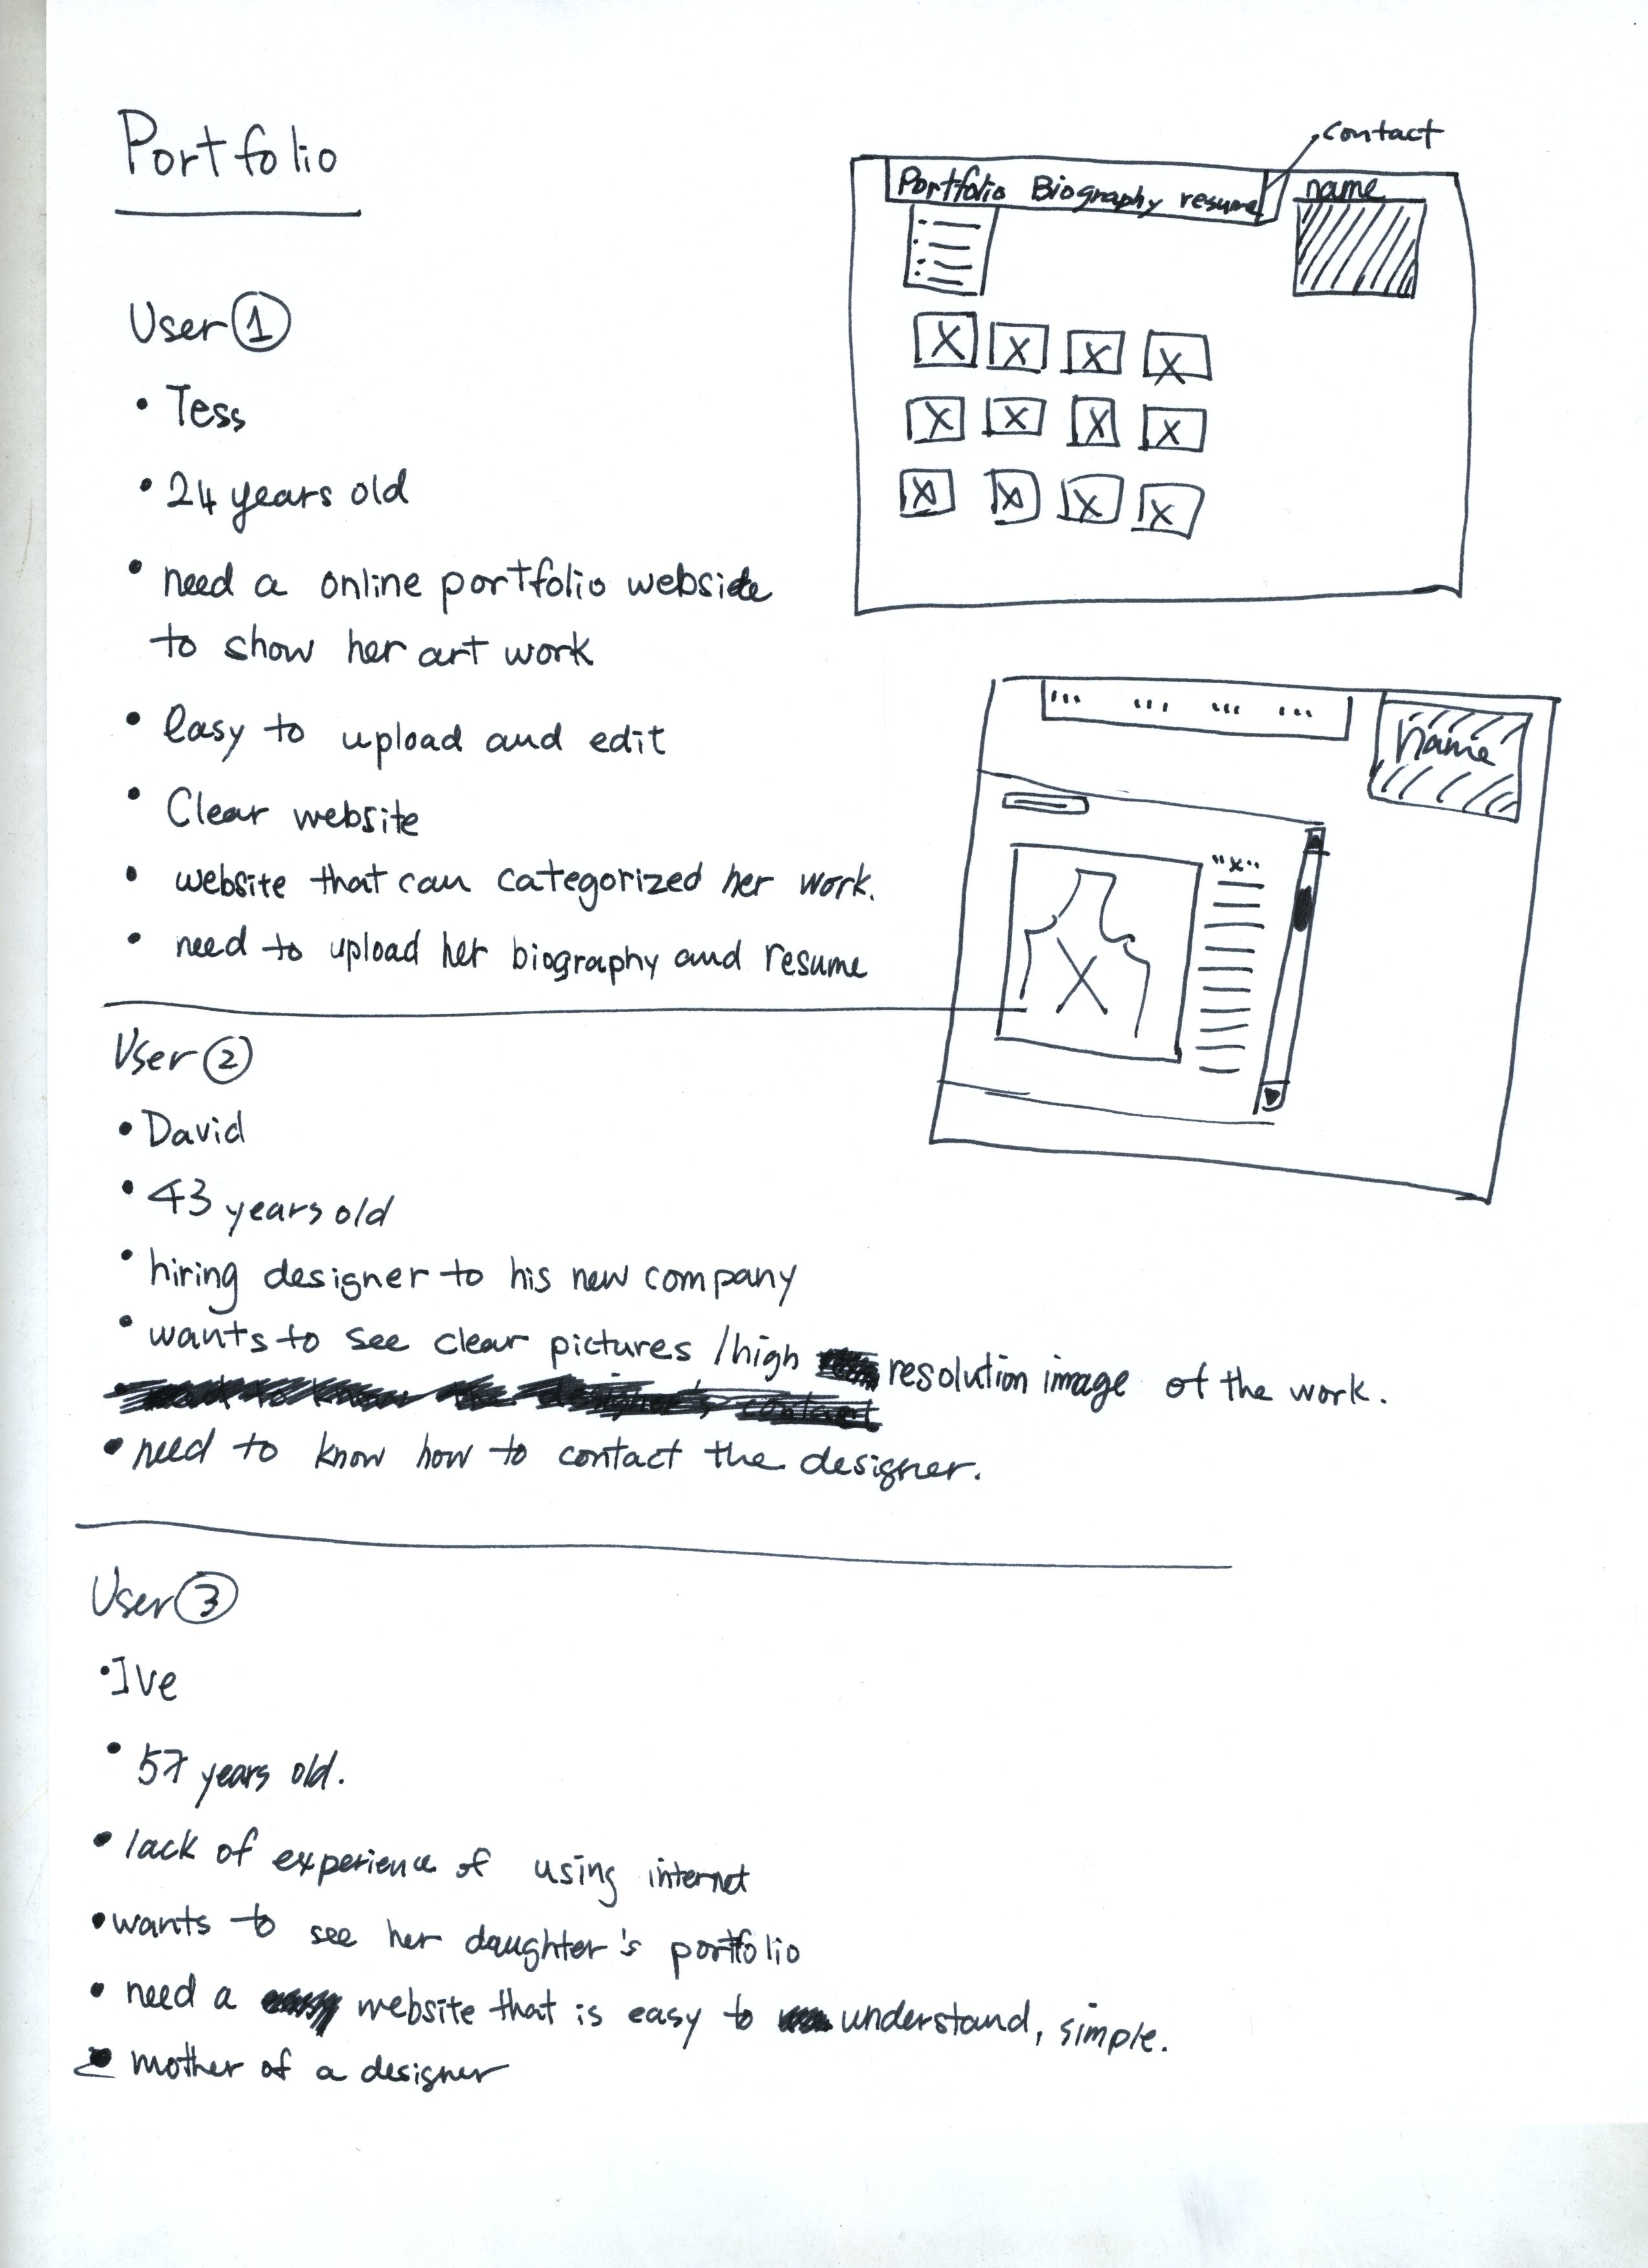 Portfolio
User ①
• Tess
• 24 years old
• need a online portfolio webside
to show her art work
• easy to upload and edit
• Clear website
• website that can categorized her work.
• need to upload her biography and resume
User ②
• David
• 43 years old
• hiring designer to his new company
• wants to see clear pictures / high resolution image of the work.
• need to know how to contact the designer.
User ③
• Ive
• 57 years old.
• lack of experience of using internet
• wants to see her daughter's portfolio
• need a website that is easy to understand, simple.
• mother of a designer
contact
Portfolio Biography resume
name
name
"x"